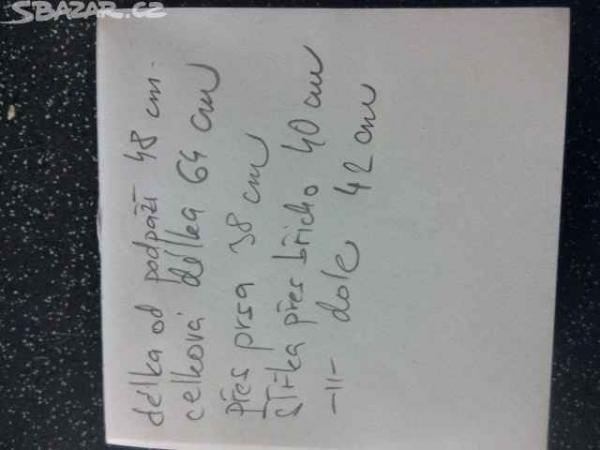 SBAZAR.CZ
délka od podpáží 48 cm.
celková délka 64 cm
přes prsa 38 cm
šířka přes břicho 40 cm
-"- dole 42 cm